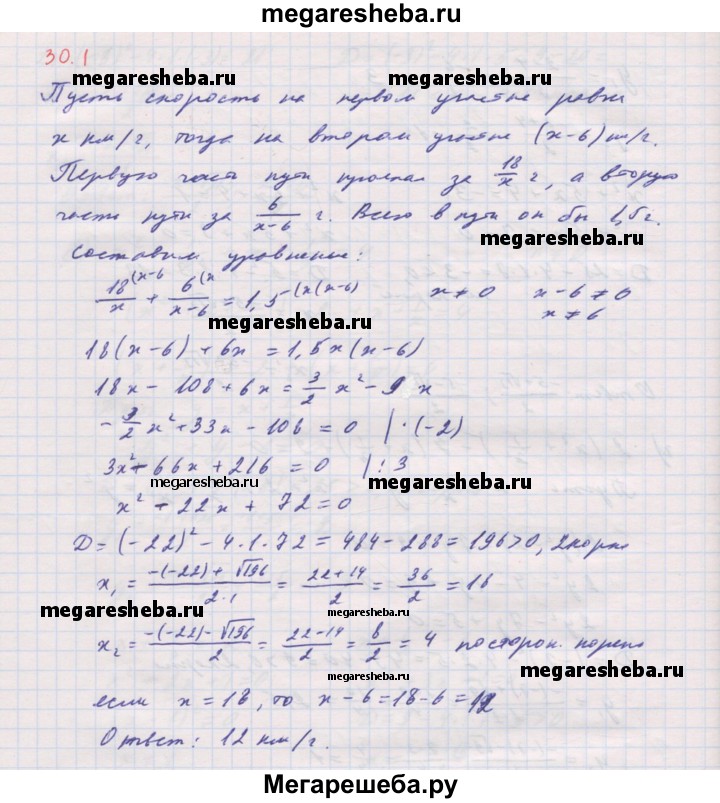 megaresheba.ru
30.1
megaresheba.ru
Пусть скорость на первом участке равна
x км/г, тогда на втором участке (x-6) км/г.
Первую часть пути проехал за 18/x г, а вторую
часть пути за 6/(x-6) г. Всего в пути он был 1,5г.
megaresheba.ru
составим уравнение:
18/x (x-6 + 6/(x-6) (x = 1,5 (x(x-6) x≠0 x-6≠0
x≠6
megaresheba.ru
18(x-6)+6x=1,5x(x-6)
18x-108+6x=3/2 x²-9x
-3/2 x²+33x-108=0 |·(-2)
3x²-66x+216=0 |:3
megaresheba.ru
x²-22x+72=0
D=(-22)²-4·1·72=484-288=196>0, 2 корня
x₁=(-(-22)+√196)/(2·1)=(22+14)/2=36/2=18
megaresheba.ru
megaresheba.ru
x₂=(-(-22)-√196)/2=(22-14)/2=8/2=4 посторон. корень
megaresheba.ru
megaresheba.ru
если x=18, то x-6=18-6=12
Ответ: 12 км/г.
megaresheba.ru
Мегарешеба.ру